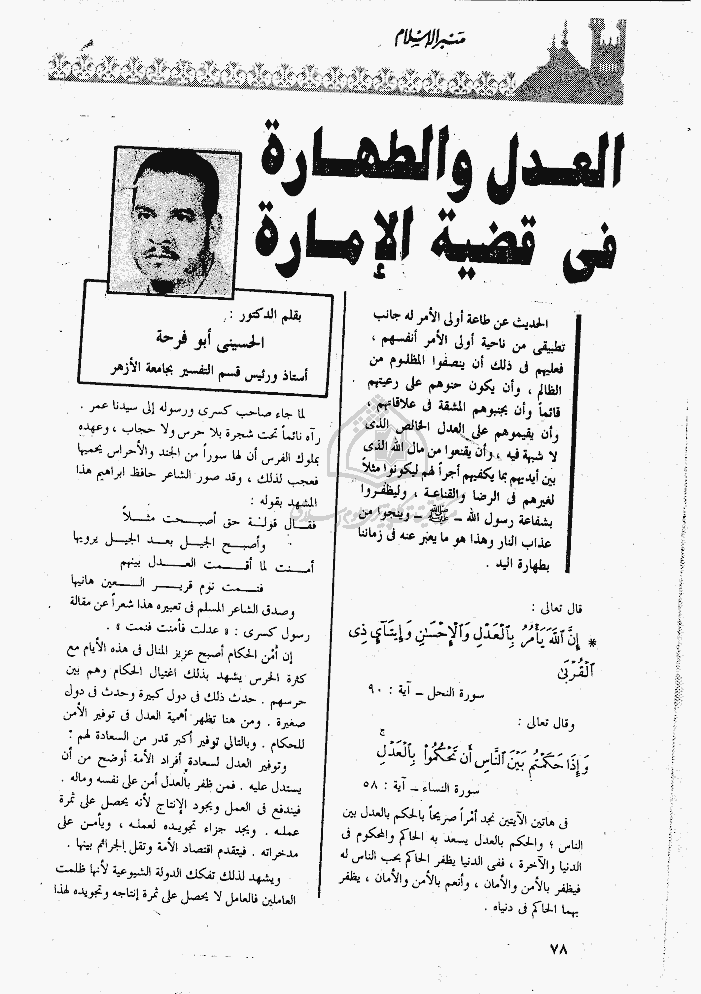 منبر الإسلام
العدل والطهارة
فى قضية الإمارة
بقلم الدكتور :
الحسينى أبو فرحة
أستاذ ورئيس قسم التفسير بجامعة الأزهر
الحديث عن طاعة أولى الأمر له جانب
تطبيقى من ناحية أولى الأمر أنفسهم ،
فعليهم فى ذلك أن ينصفوا المظلوم من
الظالم ، وأن يكون حنوهم على رعيتهم
قائماً وأن يجنبوهم المشقة فى علاقاتهم .
وأن يقيموهم على العدل الخالص الذى
لا شبهة فيه ، وأن يقنعوا من مال الله الذى
بين أيديهم بما يكفيهم أجراً لهم ليكونوا مثلاً
لغيرهم فى الرضا والقناعة ، وليظفروا
بشفاعة رسول الله ـ ﷺ ـ وينجوا من
عذاب النار وهذا هو ما يعبر عنه فى زماننا
بطهارة اليد .
قال تعالى :
* إِنَّ ٱللَّهَ يَأْمُرُ بِٱلْعَدْلِ وَٱلْإِحْسَٰنِ وَإِيتَآئِ ذِى
ٱلْقُرْبَىٰ
سورة النحل ـ آية : ٩٠
وقال تعالى :
وَإِذَا حَكَمْتُم بَيْنَ ٱلنَّاسِ أَن تَحْكُمُوا۟ بِٱلْعَدْلِ ۚ
سورة النساء ـ آية : ٥٨
فى هاتين الآيتين نجد أمْراً صريحاً بالحكم بالعدل بين
الناس ؛ والحكم بالعدل يسعد به الحاكم والمحكوم فى
الدنيا والآخرة ، ففى الدنيا يظفر الحاكم بحب الناس له
فيظفر بالأمن والأمان ، وأنعم بالأمن والأمان ، يظفر
بهما الحاكم فى دنياه .
لما جاء صاحب كسرى ورسوله إلى سيدنا عمر .
رآه نائماً تحت شجرة بلا حرس ولا حجاب ، وعهده
بملوك الفرس أن لها سوراً من الجند والأحراس يحميها
فعجب لذلك ، وقد صور الشاعر حافظ ابراهيم هذا
المشهد بقوله :
فقـال قولـة حق أصبـحت مثـلاً
وأصبـح الجيـل بعـد الجيـل يرويها
أمـنت لما أقـمت العـدل بينهم
فنـمت نوم قريـر العـين هانيها
وصدق الشاعر المسلم فى تعبيره هذا شعراً عن مقالة
رسول كسرى : « عدلت فأمنت فنمت » .
إن أمْن الحكام أصبح عزيز المنال فى هذه الأيام مع
كثرة الحرس يشهد بذلك اغتيال الحكام وهم بين
حرسهم . حدث ذلك فى دول كبيرة وحدث فى دول
صغيرة . ومن هنا تظهر أهمية العدل فى توفير الأمن
للحكام . وبالتالى توفير أكبر قدر من السعادة لهم :
وتوفير العدل لسعادة أفراد الأمة أوضح من أن
يستدل عليه . فمن ظفر بالعدل أمن على نفسه وماله .
فيندفع فى العمل ويجود الإنتاج لأنه يحصل على ثمرة
عمله . ويجد جزاء تجويده لعمله ، ويأمن على
مدخراته . فيتقدم اقتصاد الأمة وتقل الجرائم بينها .
ويشهد لذلك تفكك الدولة الشيوعية لأنها ظلمت
العاملين فالعامل لا يحصل على ثمرة إنتاجه وتجويده لهذا
٧٨